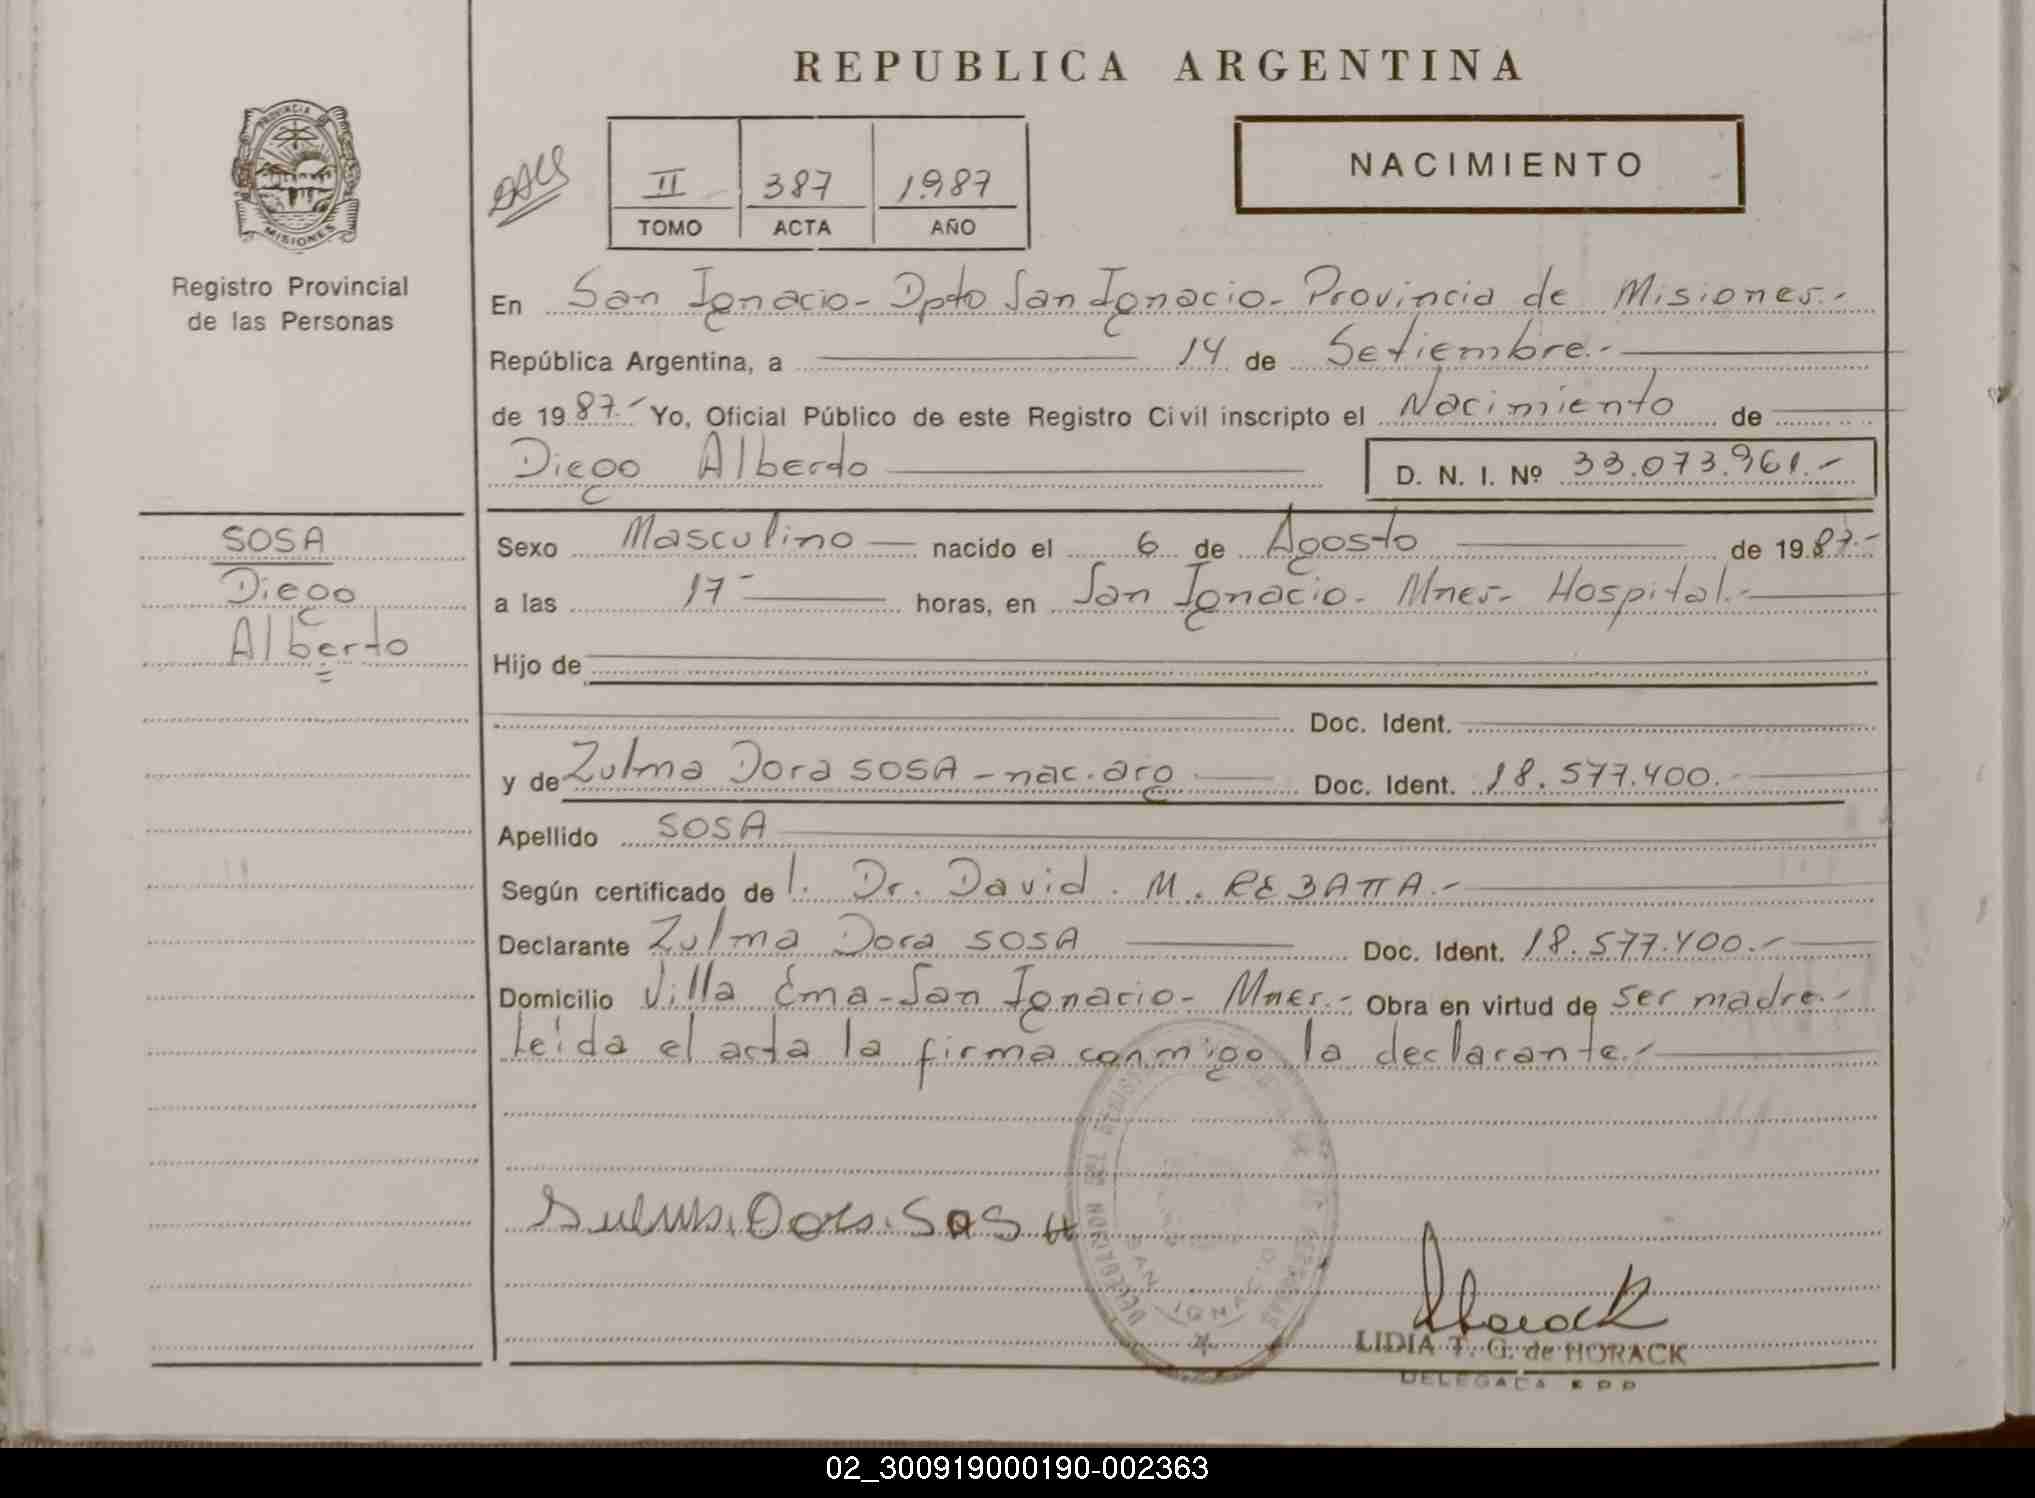 REPUBLICA ARGENTINA
PROVINCIA
MISIONES
Registro Provincial
de las Personas
II 387 1987
TOMO ACTA AÑO
NACIMIENTO
En San Ignacio - Dpto San Ignacio - Provincia de Misiones.-
República Argentina, a 14 de Setiembre.-
de 1987.- Yo, Oficial Público de este Registro Civil inscripto el Nacimiento de
Diego Alberto D. N. I. Nº 33.073.961.-
SOSA
Diego
Alberto
Sexo Masculino nacido el 6 de Agosto de 1987.-
a las 17 horas, en San Ignacio - Mnes - Hospital.-
Hijo de
Doc. Ident.
y de Zulma Dora SOSA - nac. arg Doc. Ident. 18.577.400.-
Apellido SOSA
Según certificado de l. Dr. David. M.
Declarante Zulma Dora SOSA Doc. Ident. 18.577.400.-
Domicilio Villa Ema - San Ignacio - Mnes.- Obra en virtud de ser madre.-
Leida el acta la firma conmigo la declarante.-
DELEGACION DEL REGISTRO
SAN IGNACIO
LIDIA T. G. de HORACK
02_300919000190-002363